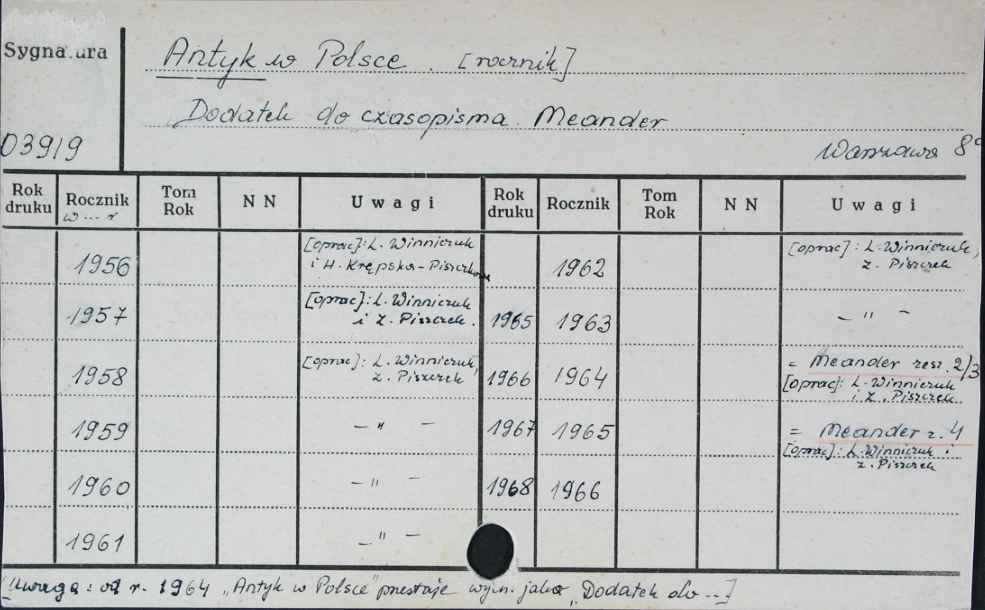 Sygnatura
Antyk w Polsce. [rocznik]
Dodatek do czasopisma Meander
03919
Warszawa 8°
Rok druku Rocznik w ... r Tom Rok N N Uwagi Rok druku Rocznik Tom Rok N N Uwagi
1956 [oprac]: L. Winniczuk i H. Krępska-Piszczkowa 1962 [oprac]: L. Winniczuk, Z. Piszczek
1957 [oprac]: L. Winniczuk i Z. Piszczek. 1965 1963 – " –
1958 [oprac]: L. Winniczuk, Z. Piszczek 1966 1964 = Meander zesz. 2/3 [oprac]: L. Winniczuk i Z. Piszczek
1959 – " – 1967 1965 = Meander z. 4 [oprac]: L. Winniczuk i Z. Piszczek
1960 – " – 1968 1966
1961 – " –
[Uwaga: od r. 1964 „Antyk w Polsce" przestaje wych. jako „Dodatek do ..]